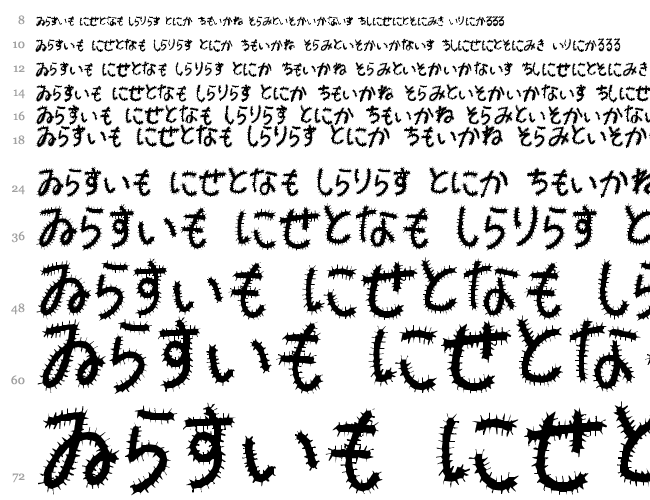 8 ゐらすいも にせとなも しらりらす とにか ちもいかね そらみといそかいかないす ちしにせにとそにみき いりにかろろろ
10 ゐらすいも にせとなも しらりらす とにか ちもいかね そらみといそかいかないす ちしにせにとそにみき いりにかろろろ
12 ゐらすいも にせとなも しらりらす とにか ちもいかね そらみといそかいかないす ちしにせにとそにみき
14 ゐらすいも にせとなも しらりらす とにか ちもいかね そらみといそかいかないす ちしにせに
16 ゐらすいも にせとなも しらりらす とにか ちもいかね そらみといそかいかない
18 ゐらすいも にせとなも しらりらす とにか ちもいかね そらみといそか
24 ゐらすいも にせとなも しらりらす とにか ちもいかね
36 ゐらすいも にせとなも しらりらす と
48 ゐらすいも にせとなも しら
60 ゐらすいも にせとな
72 ゐらすいも にせと